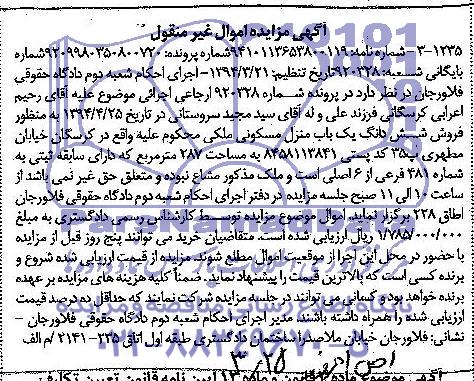 آگهی مزایده اموال غیر منقول
۳-۱۲۳۵- شماره نامه: ۹۴۱۰۱۱۳۶۵۳۸۰۰۱۱۹ شماره پرونده: ۹۲۰۹۹۸۰۳۵۰۸۰۰۷۲۰ شماره
بایگانی شعبه: ۹۲۰۳۲۸ تاریخ تنظیم: ۱۳۹۴/۳/۲۱- اجرای احکام شعبه دوم دادگاه حقوقی
فلاورجان در نظر دارد در پرونده شماره ۹۲۰۳۲۸ ارجاعی اجرائی موضوع علیه آقای رحیم
اعرابی کرسگانی فرزند علی و له آقای سید مجید سروستانی در تاریخ ۱۳۹۴/۴/۲۵ به منظور
فروش شش دانگ یک باب منزل مسکونی ملکی محکوم علیه واقع در کرسگان خیابان
مطهری پ۲۵ کد پستی ۸۴۵۸۱۱۳۸۴۱ به مساحت ۲۸۷ مترمربع که دارای سابقه ثبتی به
شماره ۴۸۱ فرعی از ۶ اصلی است و ملک مذکور مشاع نبوده و متعلق حق غیر نمی باشد از
ساعت ۱۰ الی ۱۱ صبح جلسه مزایده در دفتر اجرای احکام شعبه دوم دادگاه حقوقی فلاورجان
اطاق ۲۲۸ برگزار نماید. اموال موضوع مزایده توسط کارشناس رسمی دادگستری به مبلغ
۱/۷۸۵/۰۰۰/۰۰۰ ریال ارزیابی شده است. متقاضیان خرید می توانند پنج روز قبل از مزایده
با حضور در محل این اجرا از موقعیت اموال مطلع شوند. مزایده از قیمت ارزیابی شده شروع و
برنده کسی است که بالاترین قیمت را پیشنهاد نماید. ضمناً کلیه هزینه های مزایده بر عهده
برنده خواهد بود و کسانی می توانند در جلسه مزایده شرکت نمایند که حداقل ده درصد قیمت
ارزیابی شده را همراه داشته باشند. مدیر اجرای احکام شعبه دوم دادگاه حقوقی فلاورجان -
نشانی: فلاورجان خیابان ملاصدرا ساختمان دادگستری طبقه اول اتاق ۲۳۵- ۲۱۴۱ /م الف
ParsNamadData
۰۲۱-۸۸۳۴۹۶۷۰-۵